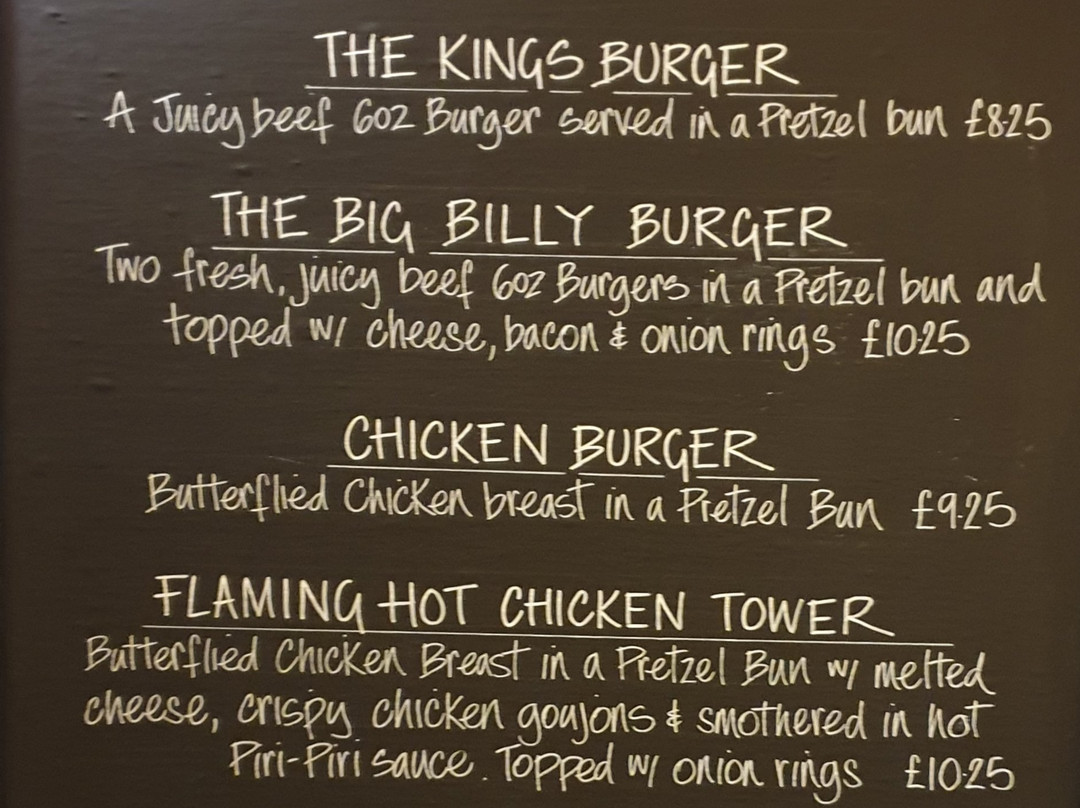 THE KINGS BURGER
A Juicy beef 6oz Burger served in a Pretzel bun £8.25
THE BIG BILLY BURGER
Two fresh, juicy beef 6oz Burgers in a Pretzel bun and
topped w/ cheese, bacon & onion rings £10.25
CHICKEN BURGER
Butterflied Chicken breast in a Pretzel Bun £9.25
FLAMING HOT CHICKEN TOWER
Butterflied Chicken Breast in a Pretzel Bun w/ melted
cheese, crispy chicken goujons & smothered in hot
Piri-Piri sauce. Topped w/ onion rings £10.25